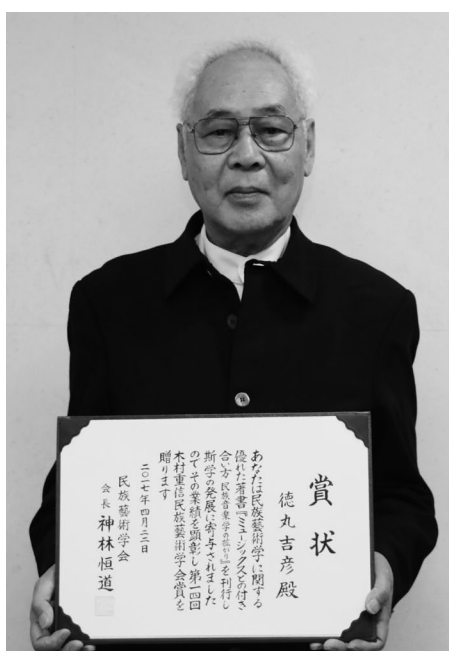 賞状
徳丸吉彦殿
あなたは民族藝術学に関する
優れた著書『ミュージックスとの付き
合い方 民族音楽学の拡がり』を刊行し
斯学の発展に寄与されました
のでその業績を顕彰し第一四回
木村重信民族藝術学会賞を
贈ります
二〇一七年四月二二日
民族藝術学会
会長 神林恒道